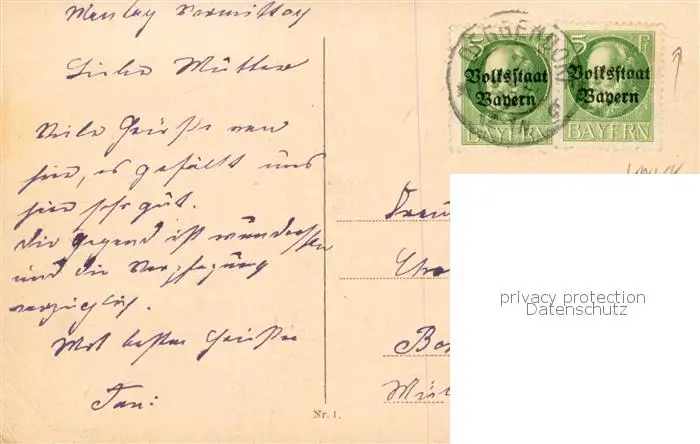 Montag Vormittag
Liebe Mutter
Viele Grüße von
hier, es gefällt uns
hier sehr gut.
Die Gegend ist wunderschön
und die Verpflegung
vorzüglich.
Mit besten Grüßen
Toni
Nr. 1.
DEGGENDORF
5
Volksstaat
Bayern
BAYERN
5 Pf
Volksstaat
Bayern
BAYERN
Frau
privacy protection
Datenschutz